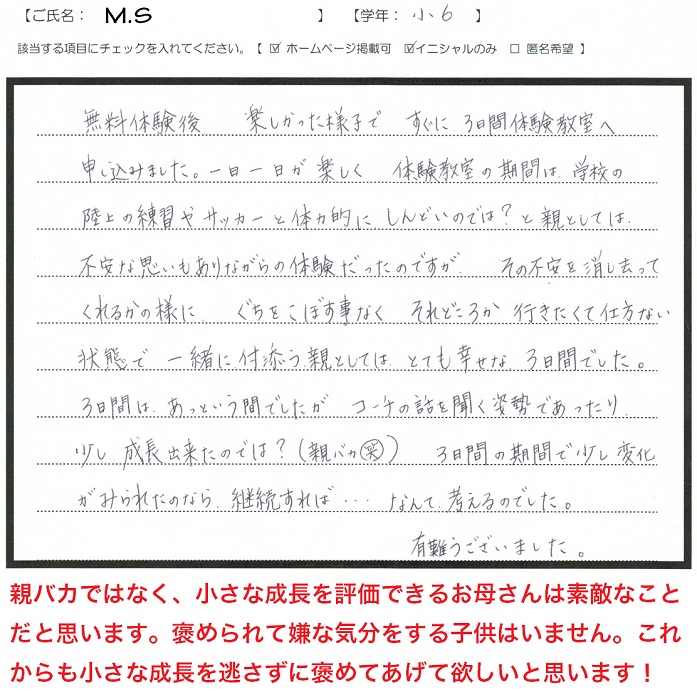 【ご氏名： M.S 】 【学年： 小6 】
該当する項目にチェックを入れてください。【 ☑ ホームページ掲載可 ☑イニシャルのみ □ 匿名希望 】
無料体験後 楽しかった様子で すぐに 3日間体験教室へ
申し込みました。一日一日が 楽しく 体験教室の期間は 学校の
陸上の練習や サッカーと体力的に しんどいのでは？と親としては
不安な思いもありながらの体験だったのですが その不安を消し去って
くれるかの様に ぐちをこぼす事なく それどころか 行きたくて仕方ない
状態で 一緒に付添う親としては とても幸せな 3日間でした。
3日間は あっという間でしたが コーチの話を聞く姿勢であったり
少し 成長出来たのでは？（親バカ㊗笑） 3日間の期間で少し変化
がみられたのなら 継続すれば… なんて 考えるのでした。
有難うございました。
親バカではなく、小さな成長を評価できるお母さんは素敵なこと
だと思います。褒められて嫌な気分をする子供はいません。これ
からも小さな成長を逃さずに褒めてあげて欲しいと思います！